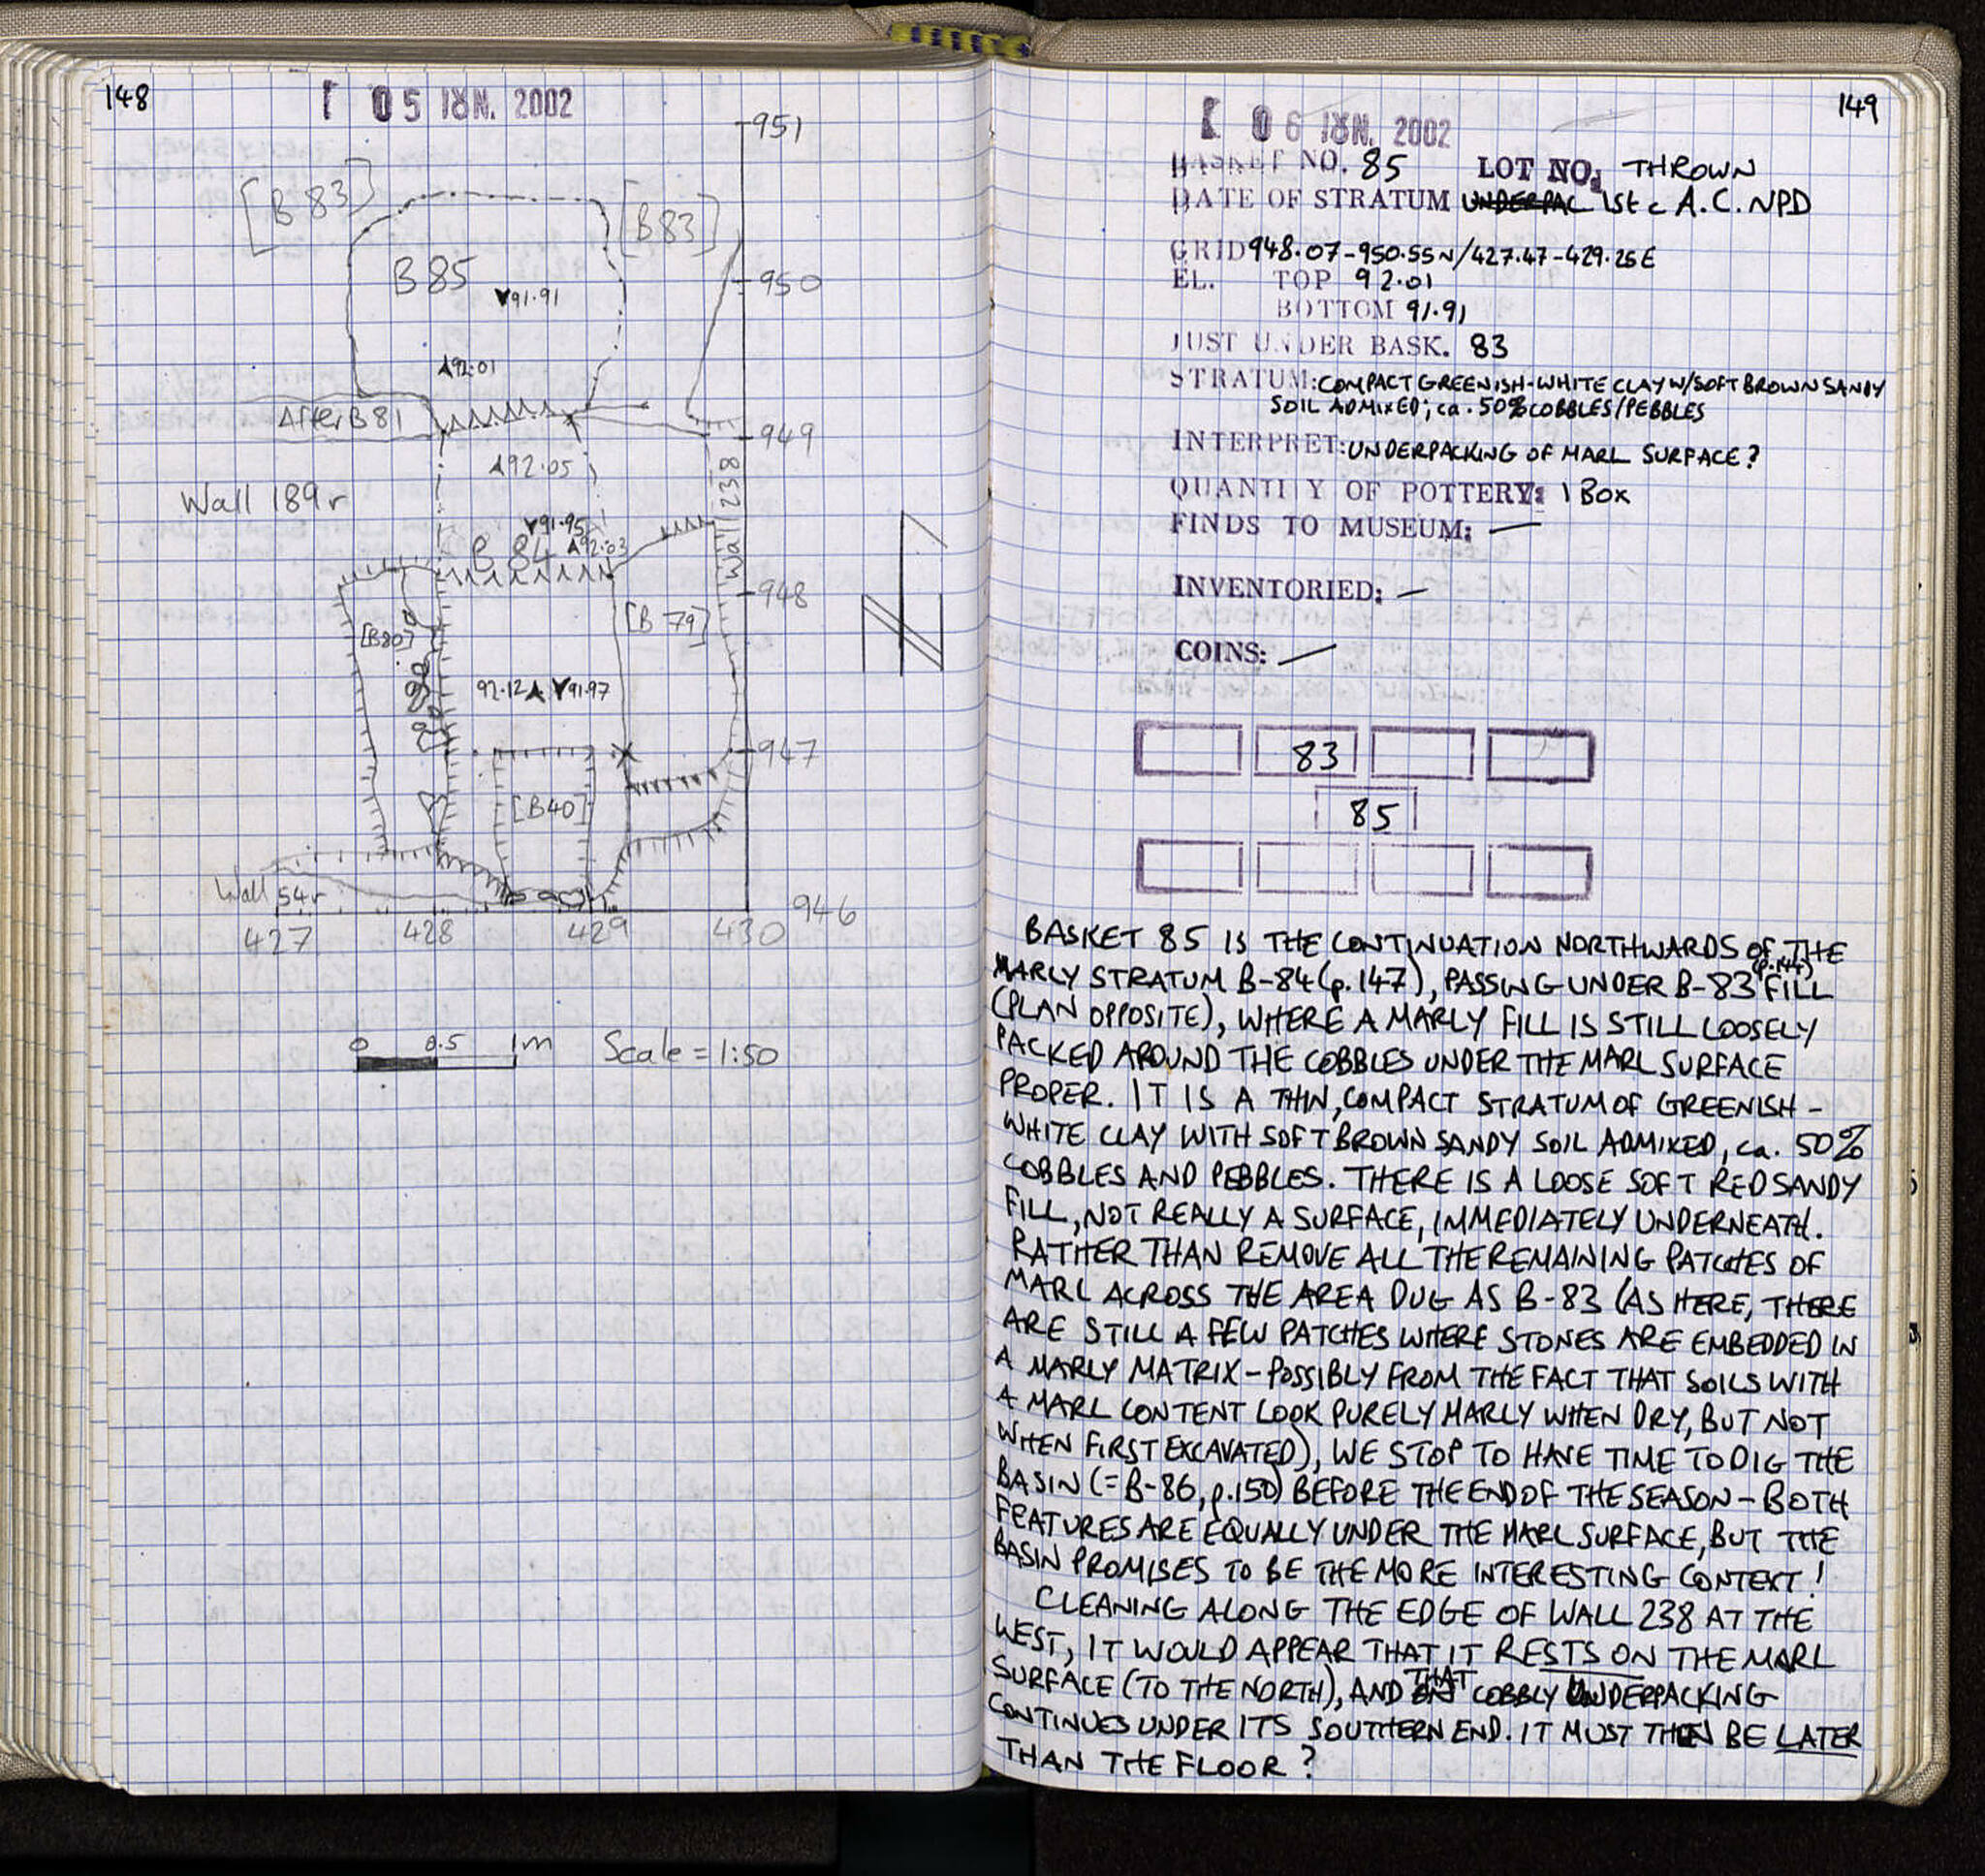 148
05 JUN. 2002
951
[B 83]
[B 83]
B 85
91.91
950
92.01
After B 81
949
92.05
Wall 189r
Wall 238
91.95
B 84
92.03
948
[B80]
[B 79]
92.12 91.97
947
[B40]
Wall 54r
946
427 428 429 430
0 0.5 1m Scale = 1:50
149
06 JUN. 2002
BASKET NO. 85 LOT NO. THROWN
DATE OF STRATUM UNDERPAC 1st c A.C. NPD
GRID 948.07-950.55N/427.47-429.25E
EL. TOP 92.01
BOTTOM 91.91
JUST UNDER BASK. 83
STRATUM: COMPACT GREENISH-WHITE CLAY W/SOFT BROWN SANDY
SOIL ADMIXED; ca. 50% COBBLES/PEBBLES
INTERPRET: UNDERPACKING OF MARL SURFACE?
QUANTITY OF POTTERY: 1 BOX
FINDS TO MUSEUM: —
INVENTORIED: —
COINS: —
83
85
BASKET 85 IS THE CONTINUATION NORTHWARDS OF THE
MARLY STRATUM B-84 (p.147), PASSING UNDER B-83 (p.144) FILL
(PLAN OPPOSITE), WHERE A MARLY FILL IS STILL LOOSELY
PACKED AROUND THE COBBLES UNDER THE MARL SURFACE
PROPER. IT IS A THIN, COMPACT STRATUM OF GREENISH-
WHITE CLAY WITH SOFT BROWN SANDY SOIL ADMIXED, ca. 50%
COBBLES AND PEBBLES. THERE IS A LOOSE SOFT RED SANDY
FILL, NOT REALLY A SURFACE, IMMEDIATELY UNDERNEATH.
RATHER THAN REMOVE ALL THE REMAINING PATCHES OF
MARL ACROSS THE AREA DUG AS B-83 (AS HERE, THERE
ARE STILL A FEW PATCHES WHERE STONES ARE EMBEDDED IN
A MARLY MATRIX - POSSIBLY FROM THE FACT THAT SOILS WITH
A MARL CONTENT LOOK PURELY MARLY WHEN DRY, BUT NOT
WHEN FIRST EXCAVATED), WE STOP TO HAVE TIME TO DIG THE
BASIN (= B-86, p.150) BEFORE THE END OF THE SEASON - BOTH
FEATURES ARE EQUALLY UNDER THE MARL SURFACE, BUT THE
BASIN PROMISES TO BE THE MORE INTERESTING CONTEXT!
CLEANING ALONG THE EDGE OF WALL 238 AT THE
WEST, IT WOULD APPEAR THAT IT RESTS ON THE MARL
SURFACE (TO THE NORTH), AND THAT COBBLY UNDERPACKING
CONTINUES UNDER ITS SOUTHERN END. IT MUST THEN BE LATER
THAN THE FLOOR?